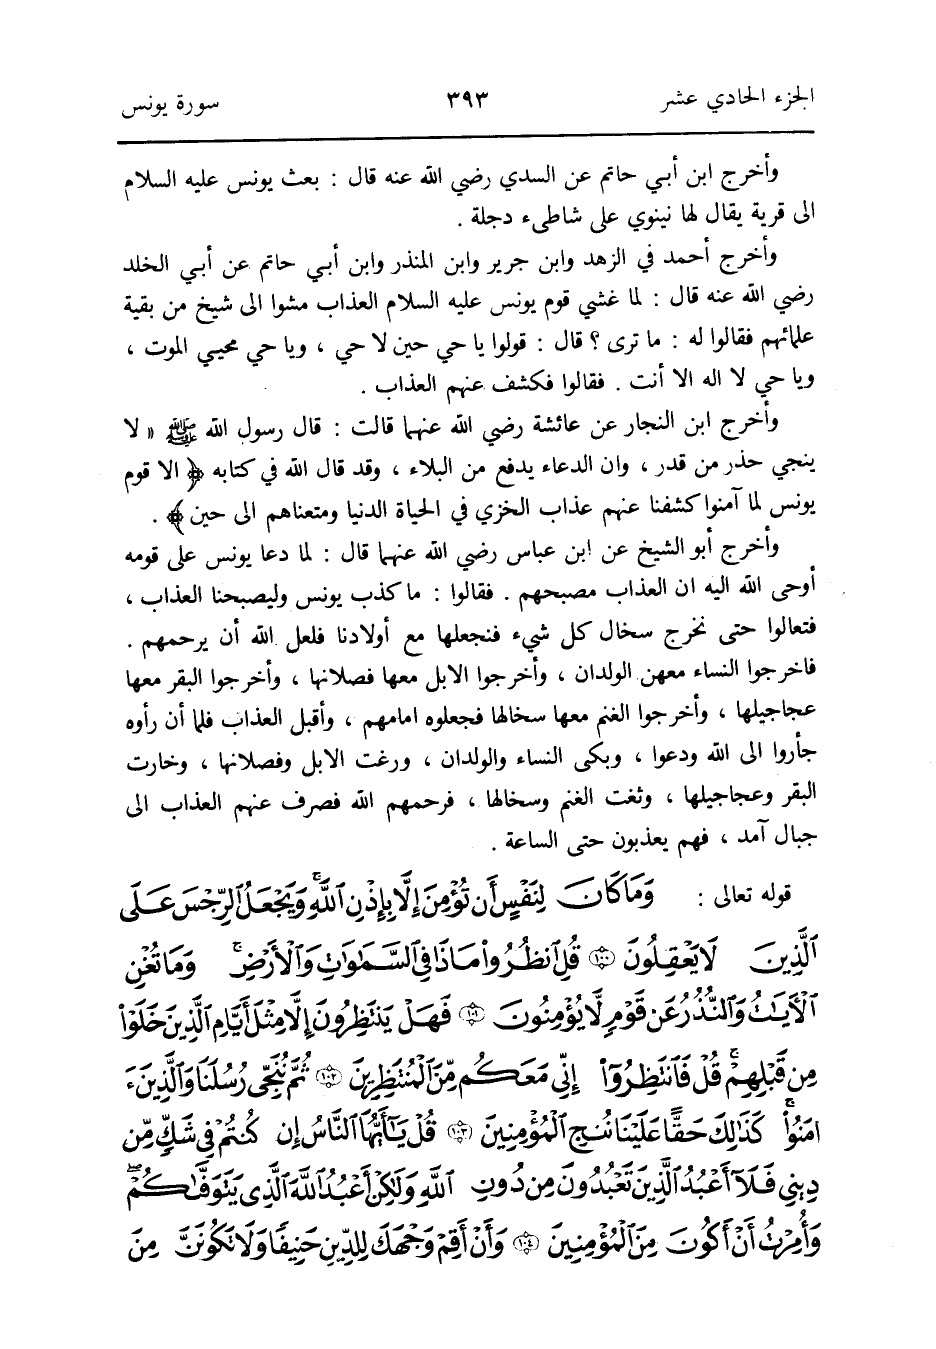 الجزء الحادي عشر ٣٩٣ سورة يونس
وأخرج ابن أبي حاتم عن السدي رضي الله عنه قال : بعث يونس عليه السلام
الى قرية يقال لها نينوي على شاطىء دجلة .
وأخرج أحمد في الزهد وابن جرير وابن المنذر وابن أبي حاتم عن أبي الخلد
رضي الله عنه قال : لما غشي قوم يونس عليه السلام العذاب مشوا الى شيخ من بقية
علمائهم فقالوا له : ما ترى ؟ قال : قولوا يا حي حين لا حي ، ويا حي محيي الموت ،
ويا حي لا اله الا أنت . فقالوا فكشف عنهم العذاب .
وأخرج ابن النجار عن عائشة رضي الله عنها قالت : قال رسول الله ﷺ « لا
ينجي حذر من قدر ، وان الدعاء يدفع من البلاء ، وقد قال الله في كتابه ﴿ الا قوم
يونس لما آمنوا كشفنا عنهم عذاب الخزي في الحياة الدنيا ومتعناهم الى حين ﴾ .
وأخرج أبو الشيخ عن ابن عباس رضي الله عنهما قال : لما دعا يونس على قومه
أوحى الله اليه ان العذاب مصبحهم . فقالوا : ما كذب يونس وليصبحنا العذاب ،
فتعالوا حتى نخرج سخال كل شيء فنجعلها مع أولادنا فلعل الله أن يرحمهم .
فاخرجوا النساء معهن الولدان ، وأخرجوا الابل معها فصلانها ، وأخرجوا البقر معها
عجاجيلها ، وأخرجوا الغنم معها سخالها فجعلوه امامهم ، وأقبل العذاب فلما أن رأوه
جأروا الى الله ودعوا ، وبكى النساء والولدان ، ورغت الابل وفصلانها ، وخارت
البقر وعجاجيلها ، وثغت الغنم وسخالها ، فرحمهم الله فصرف عنهم العذاب الى
جبال آمد ، فهم يعذبون حتى الساعة .
قوله تعالى : وَمَا كَانَ لِنَفْسٍ أَن تُؤْمِنَ إِلَّا بِإِذْنِ ٱللَّهِ ۚ وَيَجْعَلُ ٱلرِّجْسَ عَلَى
ٱلَّذِينَ لَا يَعْقِلُونَ ۝١٠٠ قُلِ ٱنظُرُوا۟ مَاذَا فِى ٱلسَّمَٰوَٰتِ وَٱلْأَرْضِ ۚ وَمَا تُغْنِى
ٱلْأَيَٰتُ وَٱلنُّذُرُ عَن قَوْمٍ لَّا يُؤْمِنُونَ ۝١٠١ فَهَلْ يَنتَظِرُونَ إِلَّا مِثْلَ أَيَّامِ ٱلَّذِينَ خَلَوْا۟
مِن قَبْلِهِمْ ۚ قُلْ فَٱنتَظِرُوٓا۟ إِنِّى مَعَكُم مِّنَ ٱلْمُنتَظِرِينَ ۝١٠٢ ثُمَّ نُنَجِّى رُسُلَنَا وَٱلَّذِينَ ءَ
امَنُوا۟ ۚ كَذَٰلِكَ حَقًّا عَلَيْنَا نُنجِ ٱلْمُؤْمِنِينَ ۝١٠٣ قُلْ يَٰٓأَيُّهَا ٱلنَّاسُ إِن كُنتُمْ فِى شَكٍّ مِّن
دِينِى فَلَآ أَعْبُدُ ٱلَّذِينَ تَعْبُدُونَ مِن دُونِ ٱللَّهِ وَلَٰكِنْ أَعْبُدُ ٱللَّهَ ٱلَّذِى يَتَوَفَّىٰكُمْ ۖ
وَأُمِرْتُ أَنْ أَكُونَ مِنَ ٱلْمُؤْمِنِينَ ۝١٠٤ وَأَنْ أَقِمْ وَجْهَكَ لِلدِّينِ حَنِيفًا وَلَا تَكُونَنَّ مِنَ